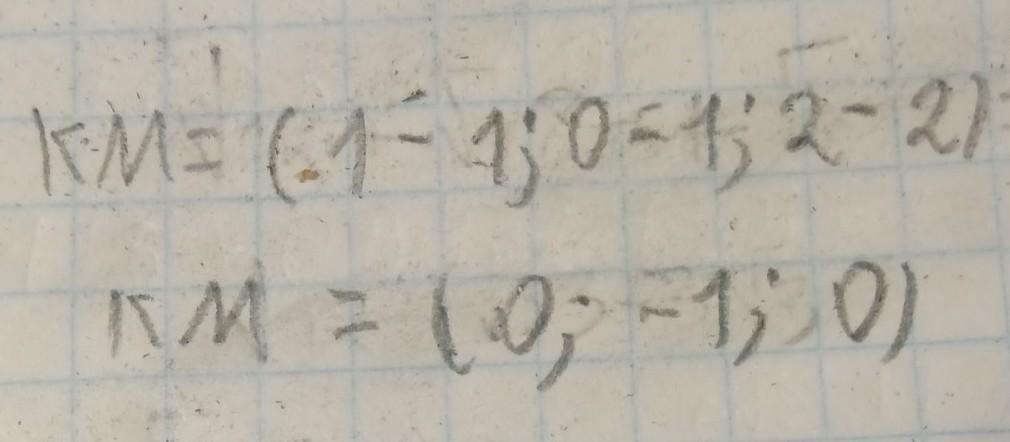 KM = (1 - 1; 0 - 1; 2 - 2) =
KM = (0; -1; 0)